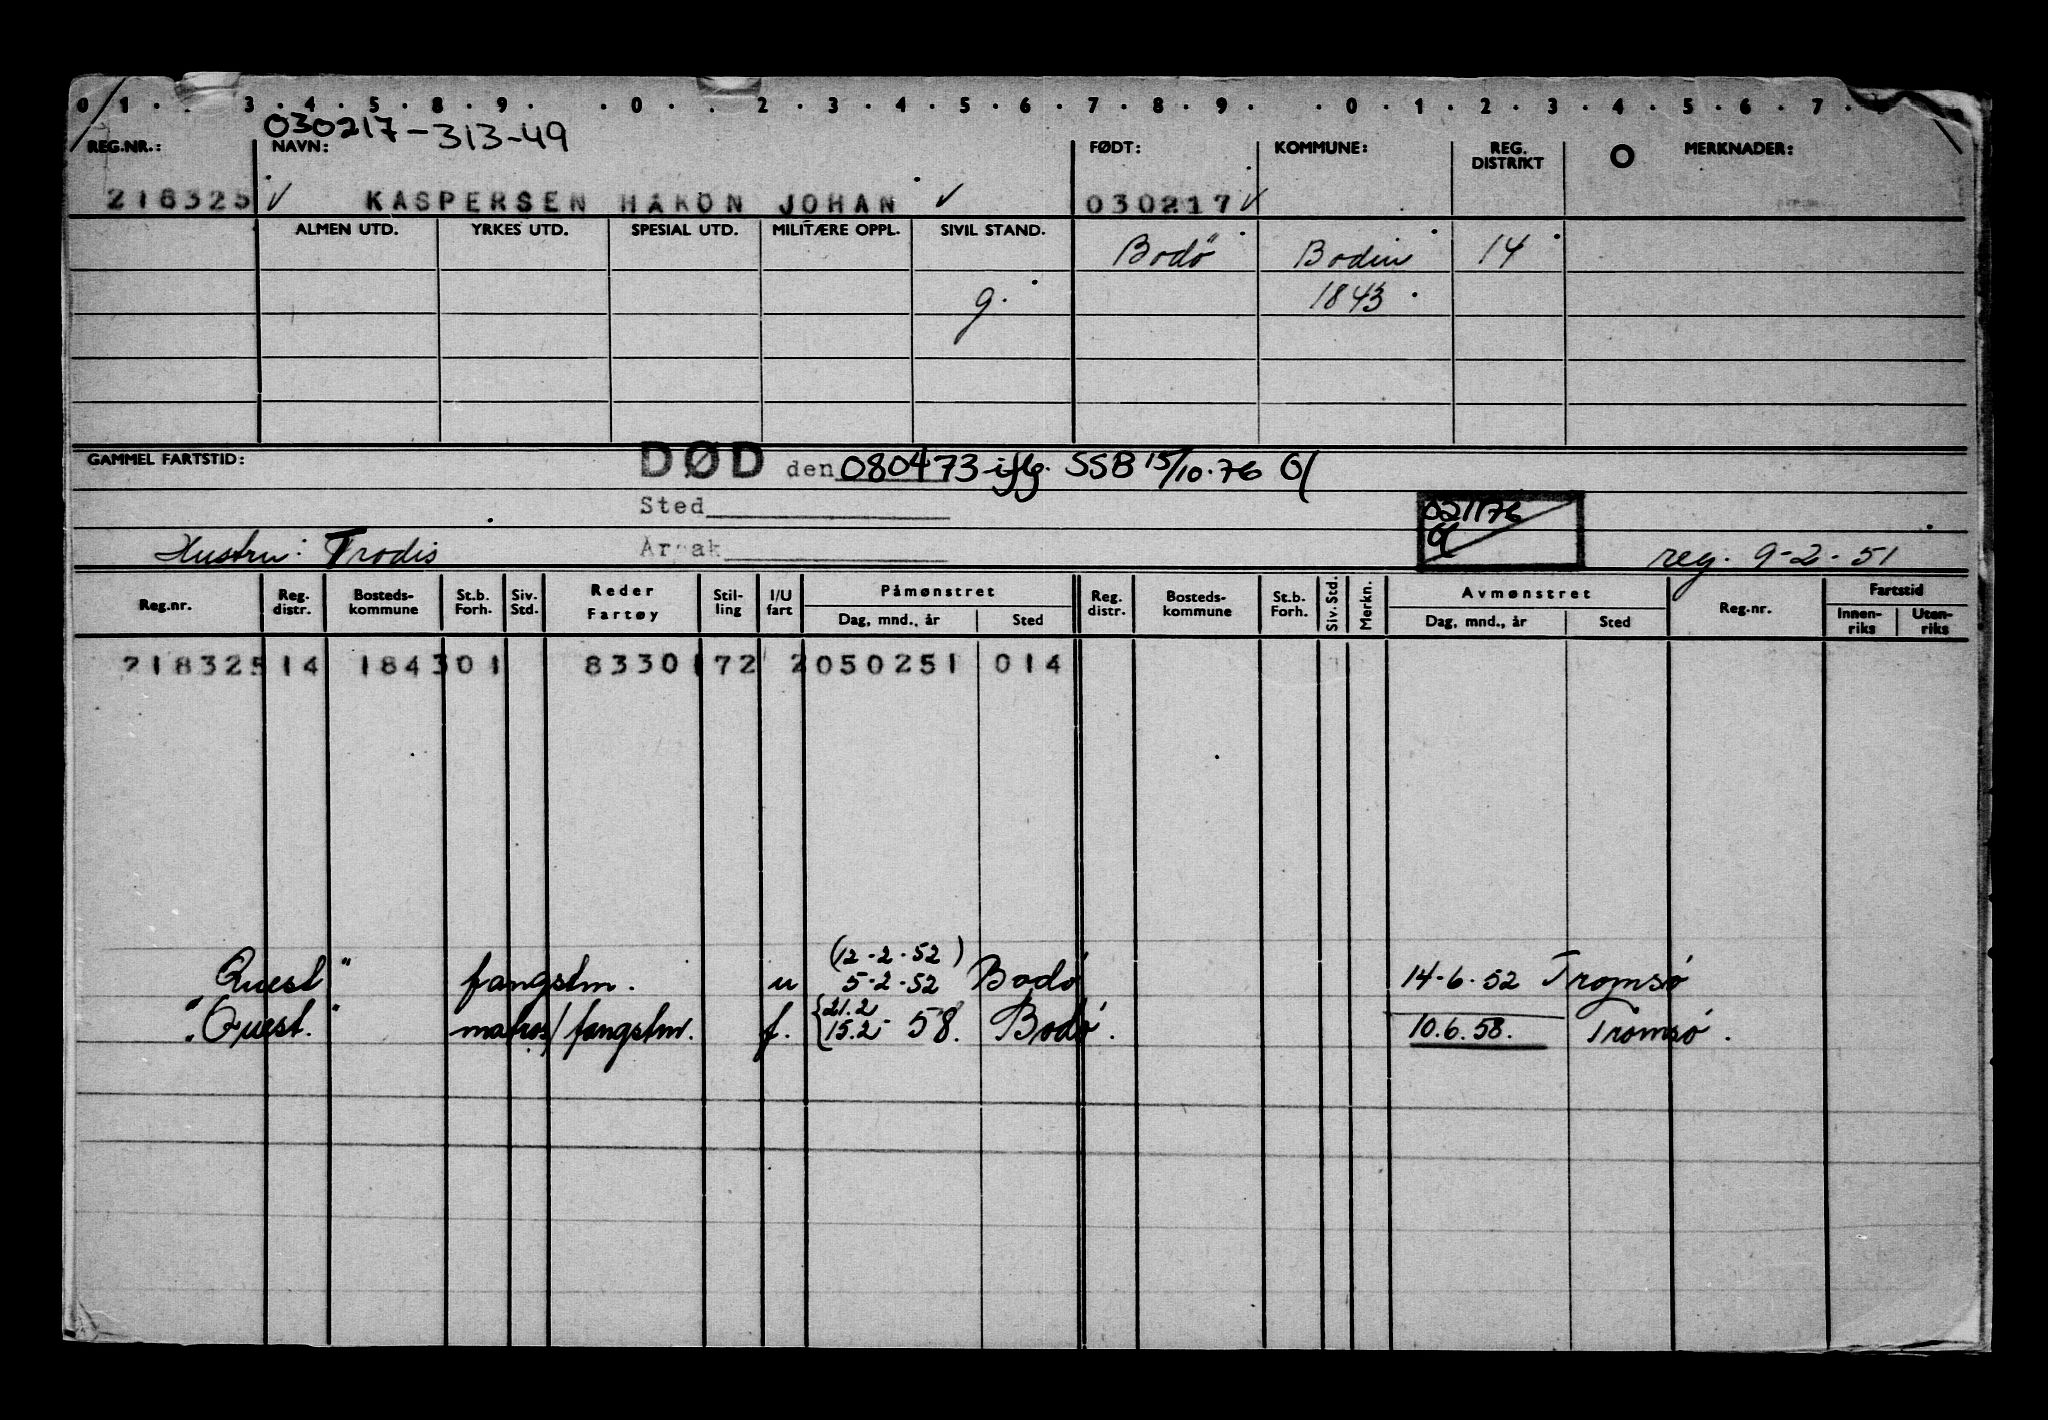 0 1 . . 3 . 4 . 5 . 8 . 9 . . 0 . . 2 . 3 . 4 . 5 . 6 . 7 . 8 . 9 . . 0 . 1 . 2 . 3 . 4 . 5 . 6 . 7 .
030217-313-49
REG.NR.: NAVN: FØDT: KOMMUNE: REG. DISTRIKT MERKNADER:
218325 ✓ KASPERSEN HAKON JOHAN ✓ 030217 ✓
ALMEN UTD. YRKES UTD. SPESIAL UTD. MILITÆRE OPPL. SIVIL STAND.
Bodö Bodin 14
g. 1843
GAMMEL FARTSTID: DØD den 080473 iflg. SSB 15/10.76
Sted
021176
Hustru: Trodis Årsak reg. 9-2-51
Reg.nr. Reg. distr. Bosteds- kommune St.b. Forh. Siv. Std. Reder Fartøy Stil- ling I/U fart Påmønstret Reg. distr. Bosteds- kommune St.b. Forh. Siv. Std. Merkn. Avmønstret Reg.nr. Fartstid
Dag, mnd., år Sted Dag, mnd., år Sted Innen- riks Uten- riks
218325 14 1843 01 8330 172 2 050251 014
(12-2-52)
Quest" fangstm. u 5-2-52 Bodö 14-6-52 Tromsö
21.2
"Quest." matros/fangstm. f. 15.2 - 58. Bodö. 10.6.58. Tromsö.